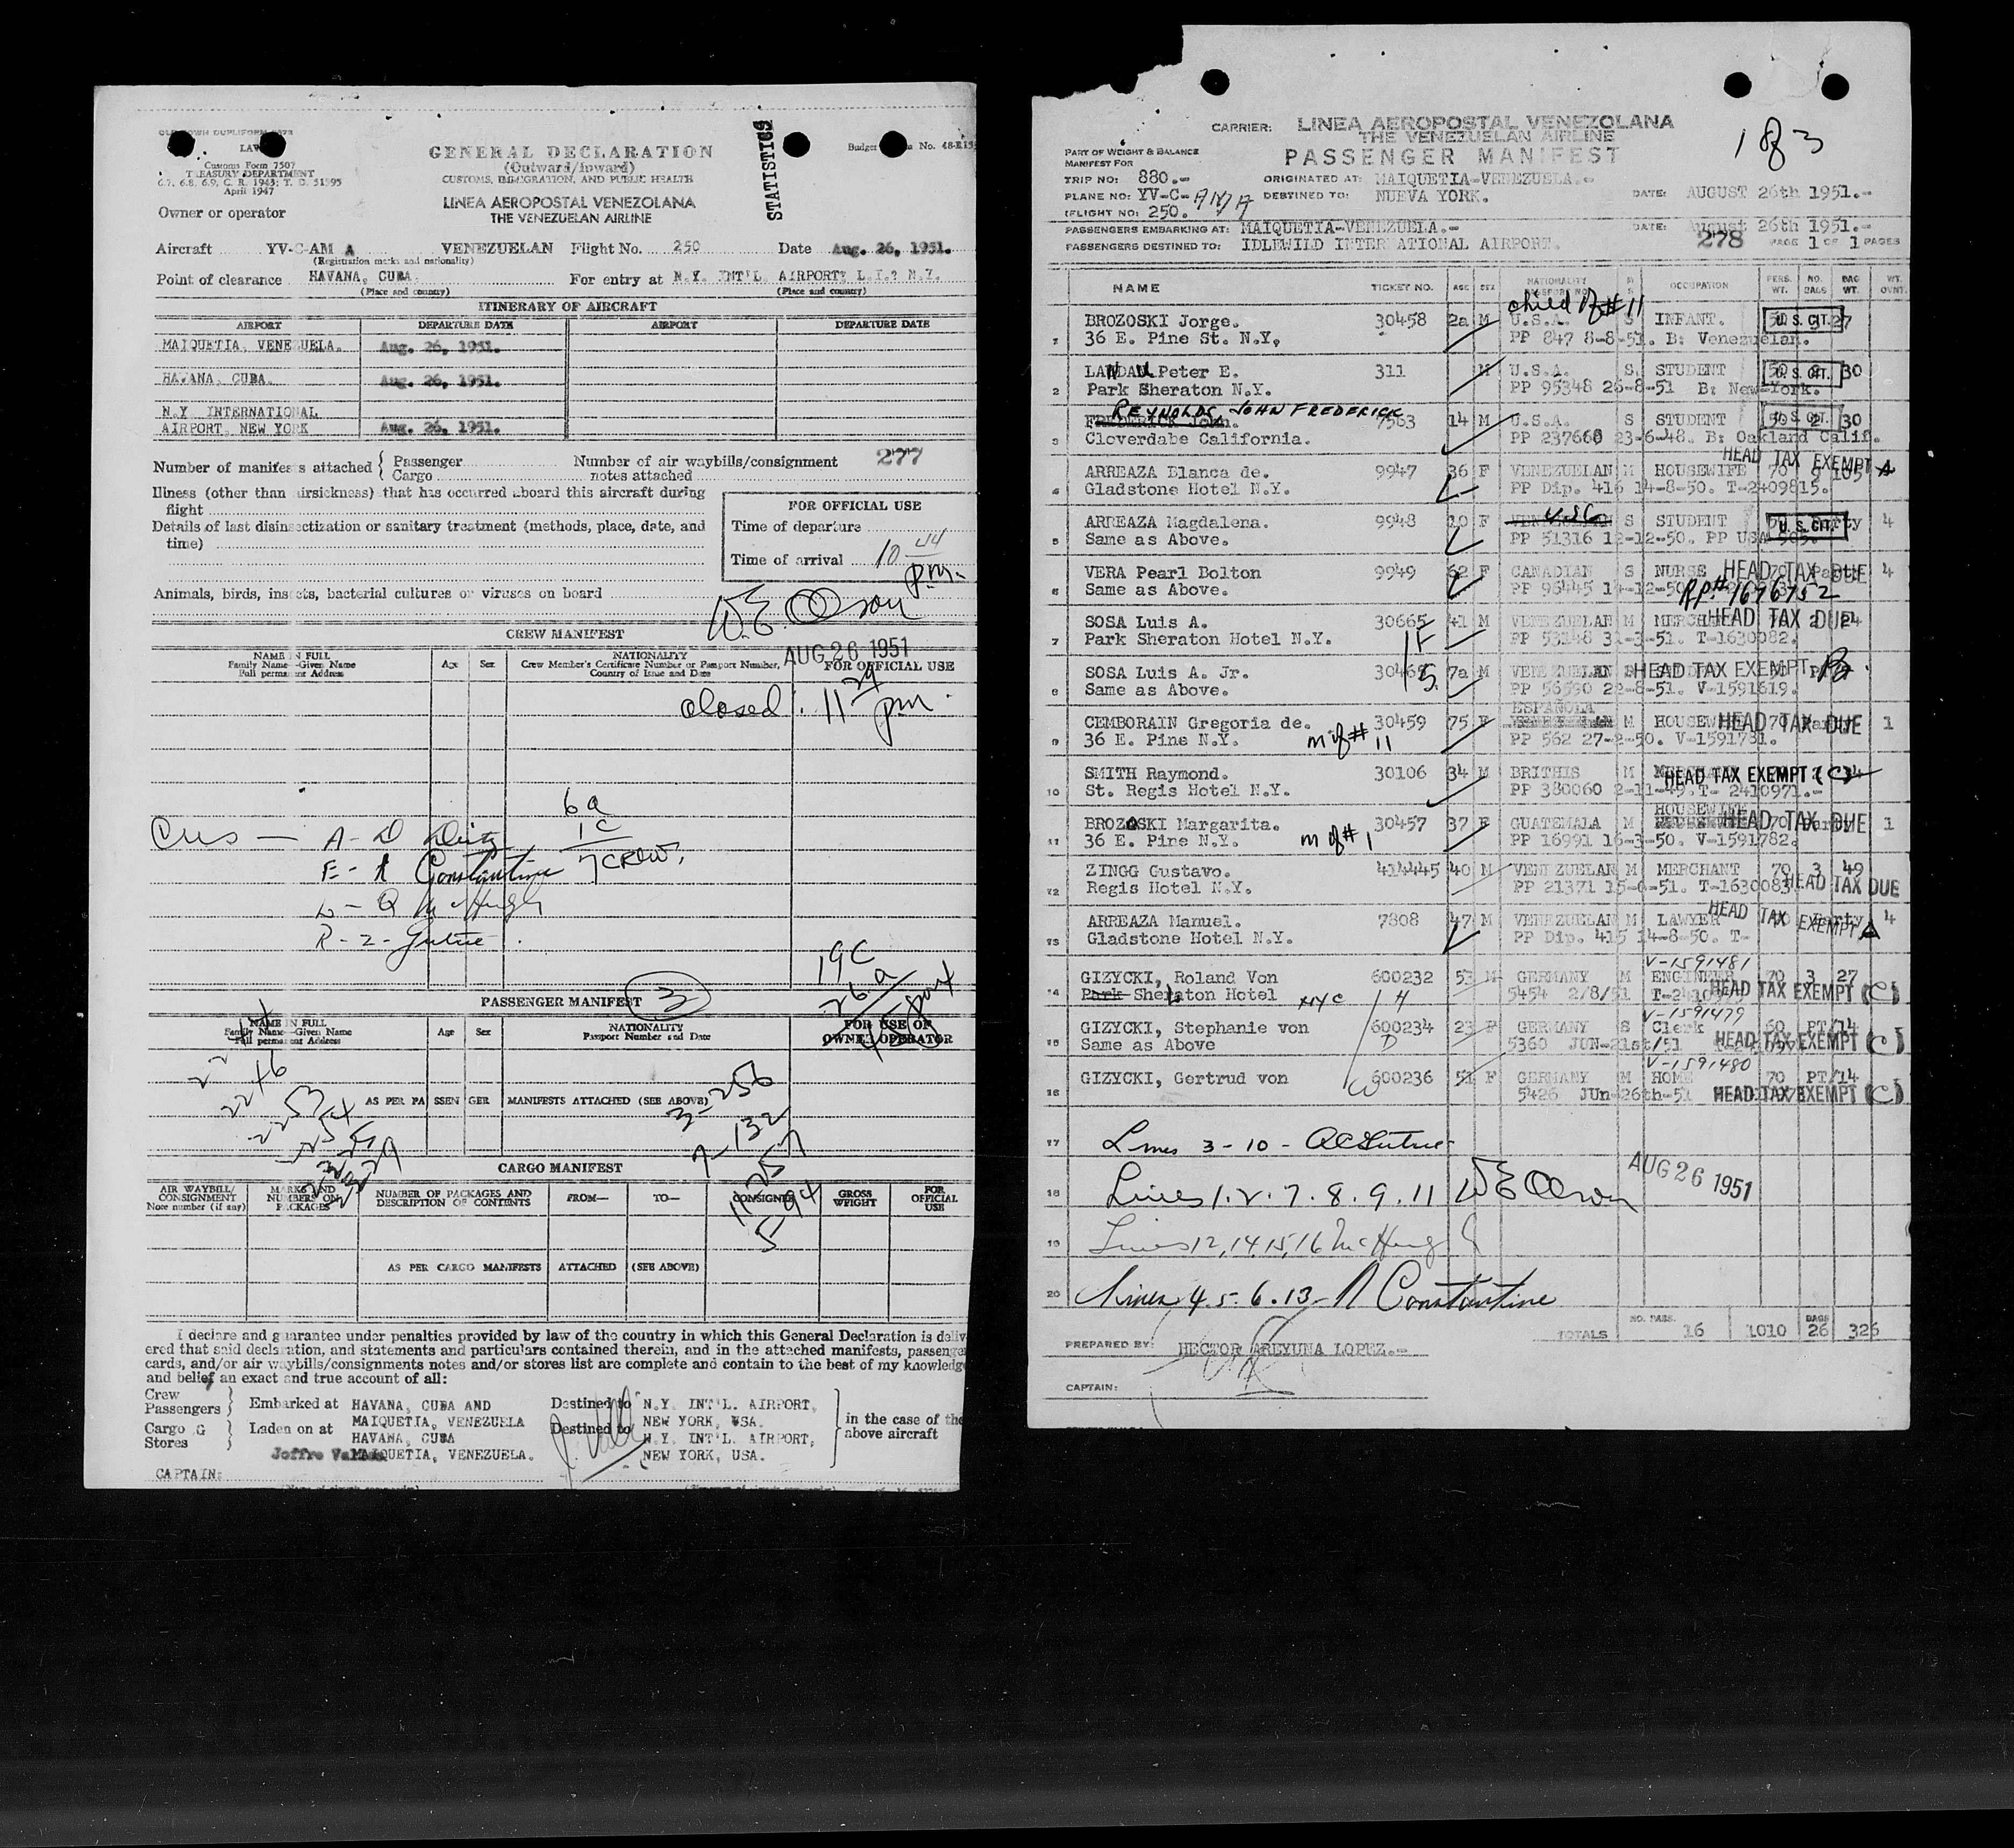 OLD TOWN DUPLIFORM
Customs Form 7507
TREASURY DEPARTMENT
6.7, 6.8, 6.9, C. R. 1943; T. D. 51595
April 1947
STATISTICS
Budget No. 48-R15
GENERAL DECLARATION
(Outward/Inward)
CUSTOMS, IMMIGRATION, AND PUBLIC HEALTH
Owner or operator
LINEA AEROPOSTAL VENEZOLANA
THE VENEZUELAN AIRLINE
Aircraft YV-C-AM A VENEZUELAN Flight No. 250 Date Aug. 26, 1951.
(Registration marks and nationality)
Point of clearance HAVANA, CUBA. For entry at N.Y. INT'L. AIRPORT, L.I., N.Y.
(Place and country) (Place and country)
ITINERARY OF AIRCRAFT
AIRPORT DEPARTURE DATE AIRPORT DEPARTURE DATE
MAIQUETIA, VENEZUELA. Aug. 26, 1951.
HAVANA, CUBA. Aug. 26, 1951.
N.Y INTERNATIONAL
AIRPORT, NEW YORK Aug. 26, 1951.
Number of manifests attached { Passenger Cargo
Number of air waybills/consignment notes attached
277
Illness (other than airsickness) that has occurred aboard this aircraft during
flight
Details of last disinsectization or sanitary treatment (methods, place, date, and
time)
FOR OFFICIAL USE
Time of departure
Time of arrival 10 44 p.m.
Animals, birds, insects, bacterial cultures or viruses on board
W.E. Olson
CREW MANIFEST
AUG 26 1951
NAME IN FULL
Family Name—Given Name
Full permanent Address
Age Sex
NATIONALITY
Crew Member's Certificate Number or Passport Number,
Country of Issue and Date
FOR OFFICIAL USE
closed: 11 29 pm.
6a
1c
7 CREW.
A - D
E - A Constantine
L - Q McHugh
R - 2 -
19C
26a
PASSENGER MANIFEST 3
NAME IN FULL
Family Name—Given Name
Full permanent Address
Age Sex
NATIONALITY
Passport Number and Date
FOR USE OF
OWNER OPERATOR
AS PER PASSENGER MANIFESTS ATTACHED (SEE ABOVE)
3-256
7-132
CARGO MANIFEST
AIR WAYBILL/
CONSIGNMENT
Note number (if any)
MARKS AND
NUMBERS ON
PACKAGES
NUMBER OF PACKAGES AND
DESCRIPTION OF CONTENTS
FROM— TO— CONSIGNEE
GROSS
WEIGHT
FOR
OFFICIAL
USE
5-94
AS PER CARGO MANIFESTS ATTACHED (SEE ABOVE)
I declare and guarantee under penalties provided by law of the country in which this General Declaration is deliv-
ered that said declaration, and statements and particulars contained therein, and in the attached manifests, passenger
cards, and/or air waybills/consignments notes and/or stores list are complete and contain to the best of my knowledge
and belief an exact and true account of all:
Crew
Passengers } Embarked at HAVANA, CUBA AND
MAIQUETIA, VENEZUELA
Destined to N.Y. INT'L. AIRPORT,
NEW YORK, USA.
Cargo G
Stores } Laden on at HAVANA, CUBA
MAIQUETIA, VENEZUELA.
Destined to N.Y. INT'L. AIRPORT,
NEW YORK, USA.
in the case of the
above aircraft
Joffre
CAPTAIN:
CARRIER: LINEA AEROPOSTAL VENEZOLANA
THE VENEZUELAN AIRLINE
PASSENGER MANIFEST
1 of 3
PART OF WEIGHT & BALANCE
MANIFEST FOR
TRIP NO: 880.- ORIGINATED AT: MAIQUETIA-VENEZUELA.-
PLANE NO: YV-C-AMA DESTINED TO: NUEVA YORK. DATE: AUGUST 26th 1951.-
(FLIGHT NO: 250.
PASSENGERS EMBARKING AT: MAIQUETIA-VENEZUELA.- DATE: August 26th 1951.-
PASSENGERS DESTINED TO: IDLEWILD INTERNATIONAL AIRPORT. 278 PAGE 1 OF 1 PAGES
NAME TICKET NO. AGE SEX NATIONALITY PASSPORT NO. M S OCCUPATION PERS. WT. NO. BAGS BAG WT. WT. OVNT.
child of #11
1 BROZOSKI Jorge. 30458 2a M U.S.A. S INFANT. U.S. CIT. 27
36 E. Pine St. N.Y, PP 847 8-8-51. B: Venezuelan.
2 LANDAU Peter E. 311 M U.S.A. S. STUDENT U.S. CIT. 30
Park Sheraton N.Y. PP 95348 26-8-51 B: New York.
REYNOLDS, JOHN FREDERICK
3 FREDERICK John. 7563 14 M U.S.A. S STUDENT 50 2 30 U.S. CIT.
Cloverdabe California. PP 237660 23-6-48. B: Oakland Calif.
4 ARREAZA Blanca de. 9947 36 F VENEZUELAN M HOUSEWIFE 70 9 105 HEAD TAX EXEMPT A
Gladstone Hotel N.Y. PP Dip. 416 14-8-50. T-2409815.
5 ARREAZA Magdalena. 9948 10 F VENEZUELAN USC S STUDENT U.S. CIT. 4
Same as Above. PP 51316 12-12-50. PP USA 505.
6 VERA Pearl Bolton 9949 62 F CANADIAN S NURSE HEAD TAX DUE 4
Same as Above. PP 96445 14-12-50. RP# 1676752
7 SOSA Luis A. 30665 41 M VENEZUELAN M MERCHANT HEAD TAX DUE 24
Park Sheraton Hotel N.Y. 1F PP 53148 31-3-51. T-1630082.
8 SOSA Luis A. Jr. 7a M VENEZUELAN S HEAD TAX EXEMPT B.
Same as Above. PP 56590 22-8-51. V-1591619.
ESPAÑOLA
9 CEMBORAIN Gregoria de. 30459 75 F M HOUSEWIFE HEAD TAX DUE 1
36 E. Pine N.Y. m of # 11 PP 562 27-2-50. V-1591781.
10 SMITH Raymond. 30106 34 M BRITHIS M MERCHANT HEAD TAX EXEMPT (C)
St. Regis Hotel N.Y. PP 380060 2-11-49. T- 2410971.-
HOUSEWIFE
11 BROZOSKI Margarita. 30457 37 F GUATEMALA M HEAD TAX DUE 1
36 E. Pine N.Y. m of # 1 PP 16991 16-3-50. V-1591782.
12 ZINGG Gustavo. 414445 40 M VENEZUELAN M MERCHANT 70 3 49
Regis Hotel N.Y. PP 21371 15-6-51. T-1630083 HEAD TAX DUE
13 ARREAZA Manuel. 7808 47 M VENEZUELAN M LAWYER Party 4 HEAD TAX EXEMPT A
Gladstone Hotel N.Y. PP Dip. 415 14-8-50. T-
V-1591481
14 GIZYCKI, Roland Von 600232 53 M GERMANY M ENGINEER 70 3 27
Park Sheraton Hotel NYC H 5454 2/8/51 HEAD TAX EXEMPT (C)
V-1591479
15 GIZYCKI, Stephanie von 600234 23 F GERMANY S Clerk 60 PT/14
Same as Above D 5360 JUN-21st/51 HEAD TAX EXEMPT (C)
V-1591480
16 GIZYCKI, Gertrud von 600236 51 F GERMANY M HOME 70 PT/14
W 5426 JUn-26th-51 HEAD TAX EXEMPT (C)
17 Lines 3-10 -
AUG 26 1951
18 Lines 1. 2. 7. 8. 9. 11 WE Olson
19 Lines 12, 14, 15, 16 McHugh
20 Lines 4. 5. 6. 13 - A Constantine
TOTALS NO. PASS. 16 1010 BAGS 26 326
PREPARED BY: HECTOR AREYUNA LOPEZ.-
CAPTAIN: